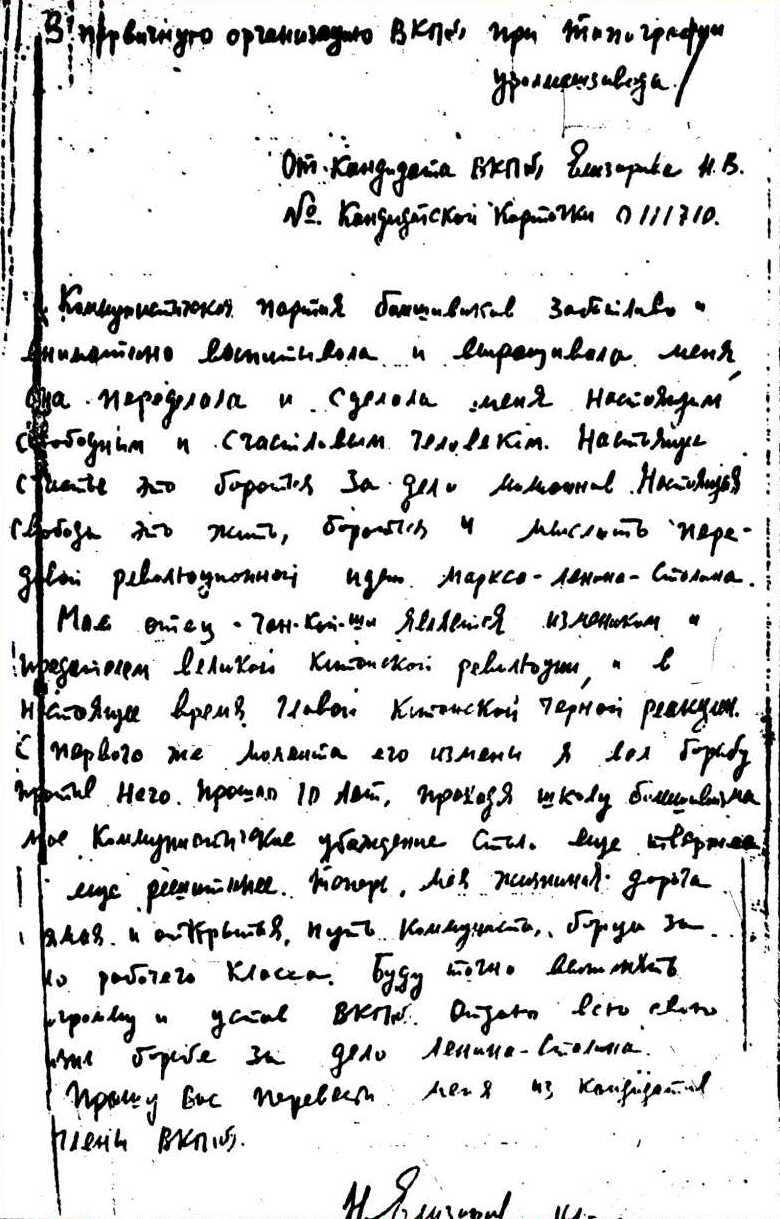 В первичную организацию ВКП(б) при типографии
уралмашзавода.
От Кандидата ВКП(б) Елизарова Н.В.
№ Кандидатской Карточки 0111710.
Коммунистическая партия большевиков заботливо и
внимательно воспитывала и выращивала меня,
она переделала и сделала меня настоящим
свободным и счастливым человеком. Настоящее
счастье это бороться за дело миллионов. Настоящая
свобода это жить, бороться и мыслить пере-
довой революционной идеи Маркса-Ленина-Сталина.
Мой отец - Чан-Кай-ши является изменником и
предателем великой Китайской революции, и в
настоящее время главой Китайской черной реакции.
С первого же момента его измены я вел борьбу
против него. Прошло 10 лет, проходя школу большевизма
мое Коммунистическое убеждение стало еще тверже
еще решительнее. Теперь, моя жизненная дорога
ямая и открытая, путь коммуниста, борца за
ло рабочего класса. Буду точно выполнять
ограмму и устав ВКП(б). Отдать всю свою
борьбе за дело Ленина-Сталина.
Прошу Вас перевести меня из кандидатов
члены ВКП(б).
Н. Елизаров